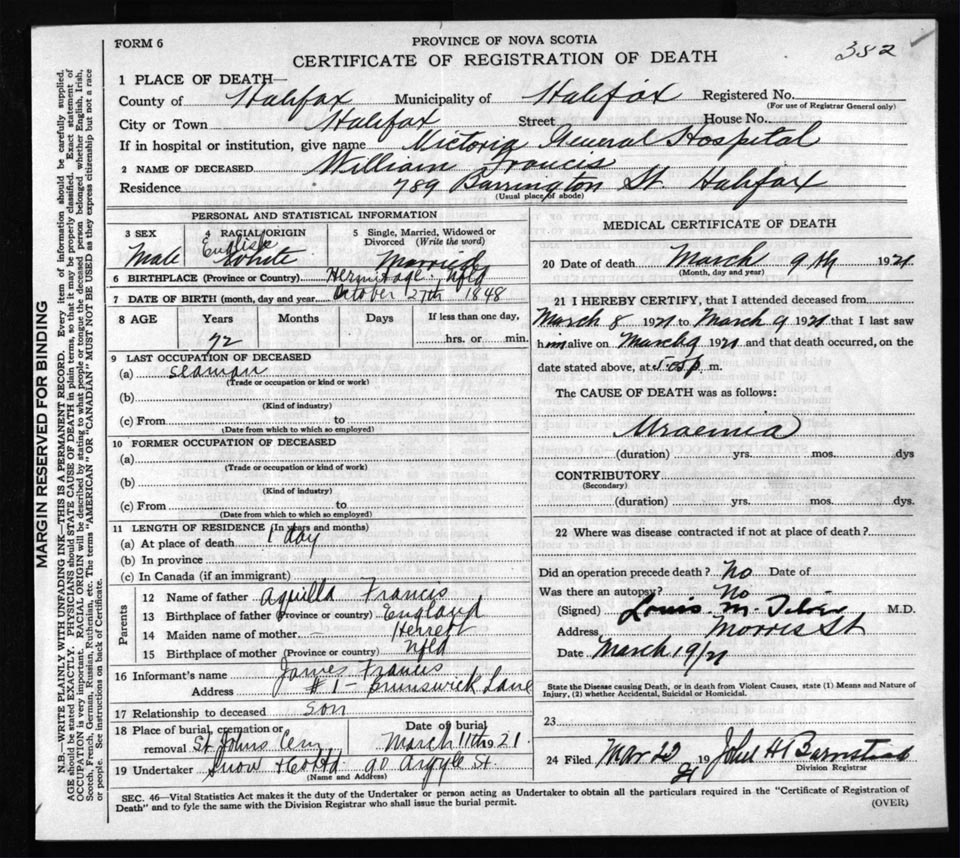 FORM 6
PROVINCE OF NOVA SCOTIA
382
CERTIFICATE OF REGISTRATION OF DEATH
1 PLACE OF DEATH—
County of Halifax Municipality of Halifax Registered No.
(For use of Registrar General only)
City or Town Halifax Street House No.
If in hospital or institution, give name Victoria General Hospital
2 NAME OF DECEASED William Francis
Residence 789 Barrington St Halifax
(Usual place of abode)
PERSONAL AND STATISTICAL INFORMATION
3 SEX 4 RACIAL ORIGIN 5 Single, Married, Widowed or Divorced (Write the word)
Male English White Married
6 BIRTHPLACE (Province or Country) Hermitage Nfld
7 DATE OF BIRTH (month, day and year) October 27th 1848
8 AGE Years Months Days If less than one day,
72 hrs. or min.
9 LAST OCCUPATION OF DECEASED
(a) seaman
(Trade or occupation or kind or work)
(b)
(Kind of industry)
(c) From to
(Date from which to which so employed)
10 FORMER OCCUPATION OF DECEASED
(a)
(Trade or occupation or kind of work)
(b)
(Kind of industry)
(c) From to
(Date from which to which so employed)
11 LENGTH OF RESIDENCE (In years and months)
(a) At place of death 1 day
(b) In province
(c) In Canada (if an immigrant)
Parents
12 Name of father Aquilla Francis
13 Birthplace of father (Province or country) England
14 Maiden name of mother — Herrett
15 Birthplace of mother (Province or country) Nfld
16 Informant's name James Francis
Address #1 - Brunswick Lane
17 Relationship to deceased Son
18 Place of burial, cremation or removal St Johns Cem Date of burial March 11th 21
19 Undertaker Snow & Co Ltd 90 Argyle St.
(Name and Address)
MEDICAL CERTIFICATE OF DEATH
20 Date of death March 9th 1921
(Month, day and year)
21 I HEREBY CERTIFY, that I attended deceased from
March 8 1921 to March 9 1921 that I last saw
him alive on March 9 1921 and that death occurred, on the
date stated above, at 5.05 p m.
The CAUSE OF DEATH was as follows:
Uraemia
(duration) yrs. mos. dys
CONTRIBUTORY
(Secondary)
(duration) yrs. mos. dys.
22 Where was disease contracted if not at place of death?
Did an operation precede death? No Date of
Was there an autopsy? No
(Signed) Louis M. Silver M.D.
Address Morris St
Date March 19/21
State the Disease causing Death, or in death from Violent Causes, state (1) Means and Nature of
Injury, (2) whether Accidental, Suicidal or Homicidal.
23
24 Filed Mar 22 19 21 John H Barnstead
Division Registrar
SEC. 46—Vital Statistics Act makes it the duty of the Undertaker or person acting as Undertaker to obtain all the particulars required in the "Certificate of Registration of
Death" and to fyle the same with the Division Registrar who shall issue the burial permit.
(OVER)
MARGIN RESERVED FOR BINDING
N.B.—WRITE PLAINLY WITH UNFADING INK—THIS IS A PERMANENT RECORD. Every item of information should be carefully supplied.
AGE should be stated EXACTLY. PHYSICIANS should STATE CAUSE OF DEATH in plain terms, so that it may be properly classified. Exact statement of
OCCUPATION is very important. RACIAL ORIGIN will be described by stating to what people or tongue the deceased person belonged whether English, Irish,
Scotch, French, German, Russian, Ruthenian, etc. The terms "AMERICAN" OR "CANADIAN" MUST NOT BE USED as they express citizenship but not a race
or people. See instructions on back of Certificate.